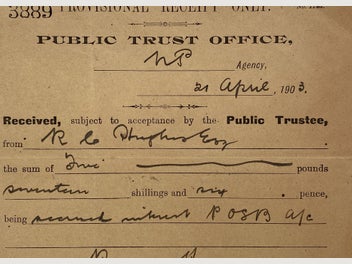 3889 PROVISIONAL RECEIPT ONLY.
PUBLIC TRUST OFFICE,
N P Agency,
21 April, 1903.
Received, subject to acceptance by the Public Trustee,
from R C Hughes Esq
the sum of pounds
seventeen shillings and six pence,
being accrued interest P O S B a/c